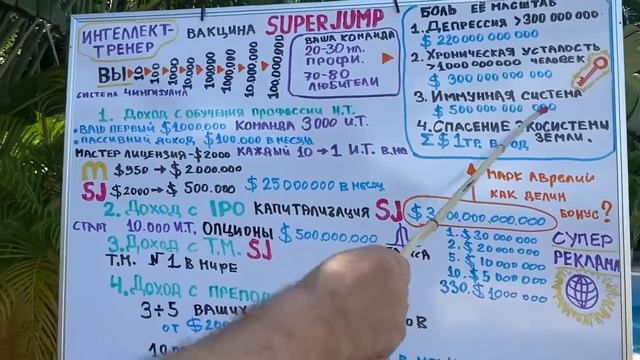 ИНТЕЛЛЕКТ-
ТРЕНЕР
ВАКЦИНА SUPERJUMP
ВЫ 10 100 1000 10.000 100.000 1000.000 10.000.000 100.000.000
СИСТЕМА ЧИНГИЗХАНА
ВАША КОМАНДА
20-30 МЛ.
ПРОФИ.
70-80
ЛЮБИТЕЛИ
БОЛЬ ЕЁ МАСШТАБ
1. ДЕПРЕССИЯ >300 000 000
$ 220 000 000 000
2. ХРОНИЧЕСКАЯ УСТАЛОСТЬ
>1 000 000 000 ЧЕЛОВЕК
$ 300 000 000 000
3. ИММУННАЯ СИСТЕМА
$ 500 000 000 000
4. СПАСЕНИЕ ЭКОСИСТЕМЫ
ЗЕМЛИ.
Σ $ 1 ТР. В ГОД
1. ДОХОД С ОБУЧЕНИЯ ПРОФЕССИИ И.Т.
• ВАШ ПЕРВЫЙ $1000000 КОМАНДА 3000 И.Т.
• ПАССИВНЫЙ ДОХОД $100.000 В МЕСЯЦ
МАСТЕР ЛИЦЕНЗИЯ - $2000 КАЖДЫЙ 10 → 1 И.Т.
M $950 → $2000.000
SJ $2000 → $500.000 $25000000 В МЕСЯЦ
2. ДОХОД С IPO КАПИТАЛИЗАЦИЯ SJ
СТАРТ 10.000 И.Т. ОПЦИОНЫ $500.000.000
3. ДОХОД С Т.М. SJ
Т.М. №1 В МИРЕ
4. ДОХОД С
3÷5 ВАШИХ
ОТ
МАРК АВРЕЛИЙ
КАК ДЕЛИМ
БОНУС?
1. $30 000 000
2. $20 000 000
5. $10 000 000
10. $5 000 000
330. $1000 000
СУПЕР
РЕКЛАМА